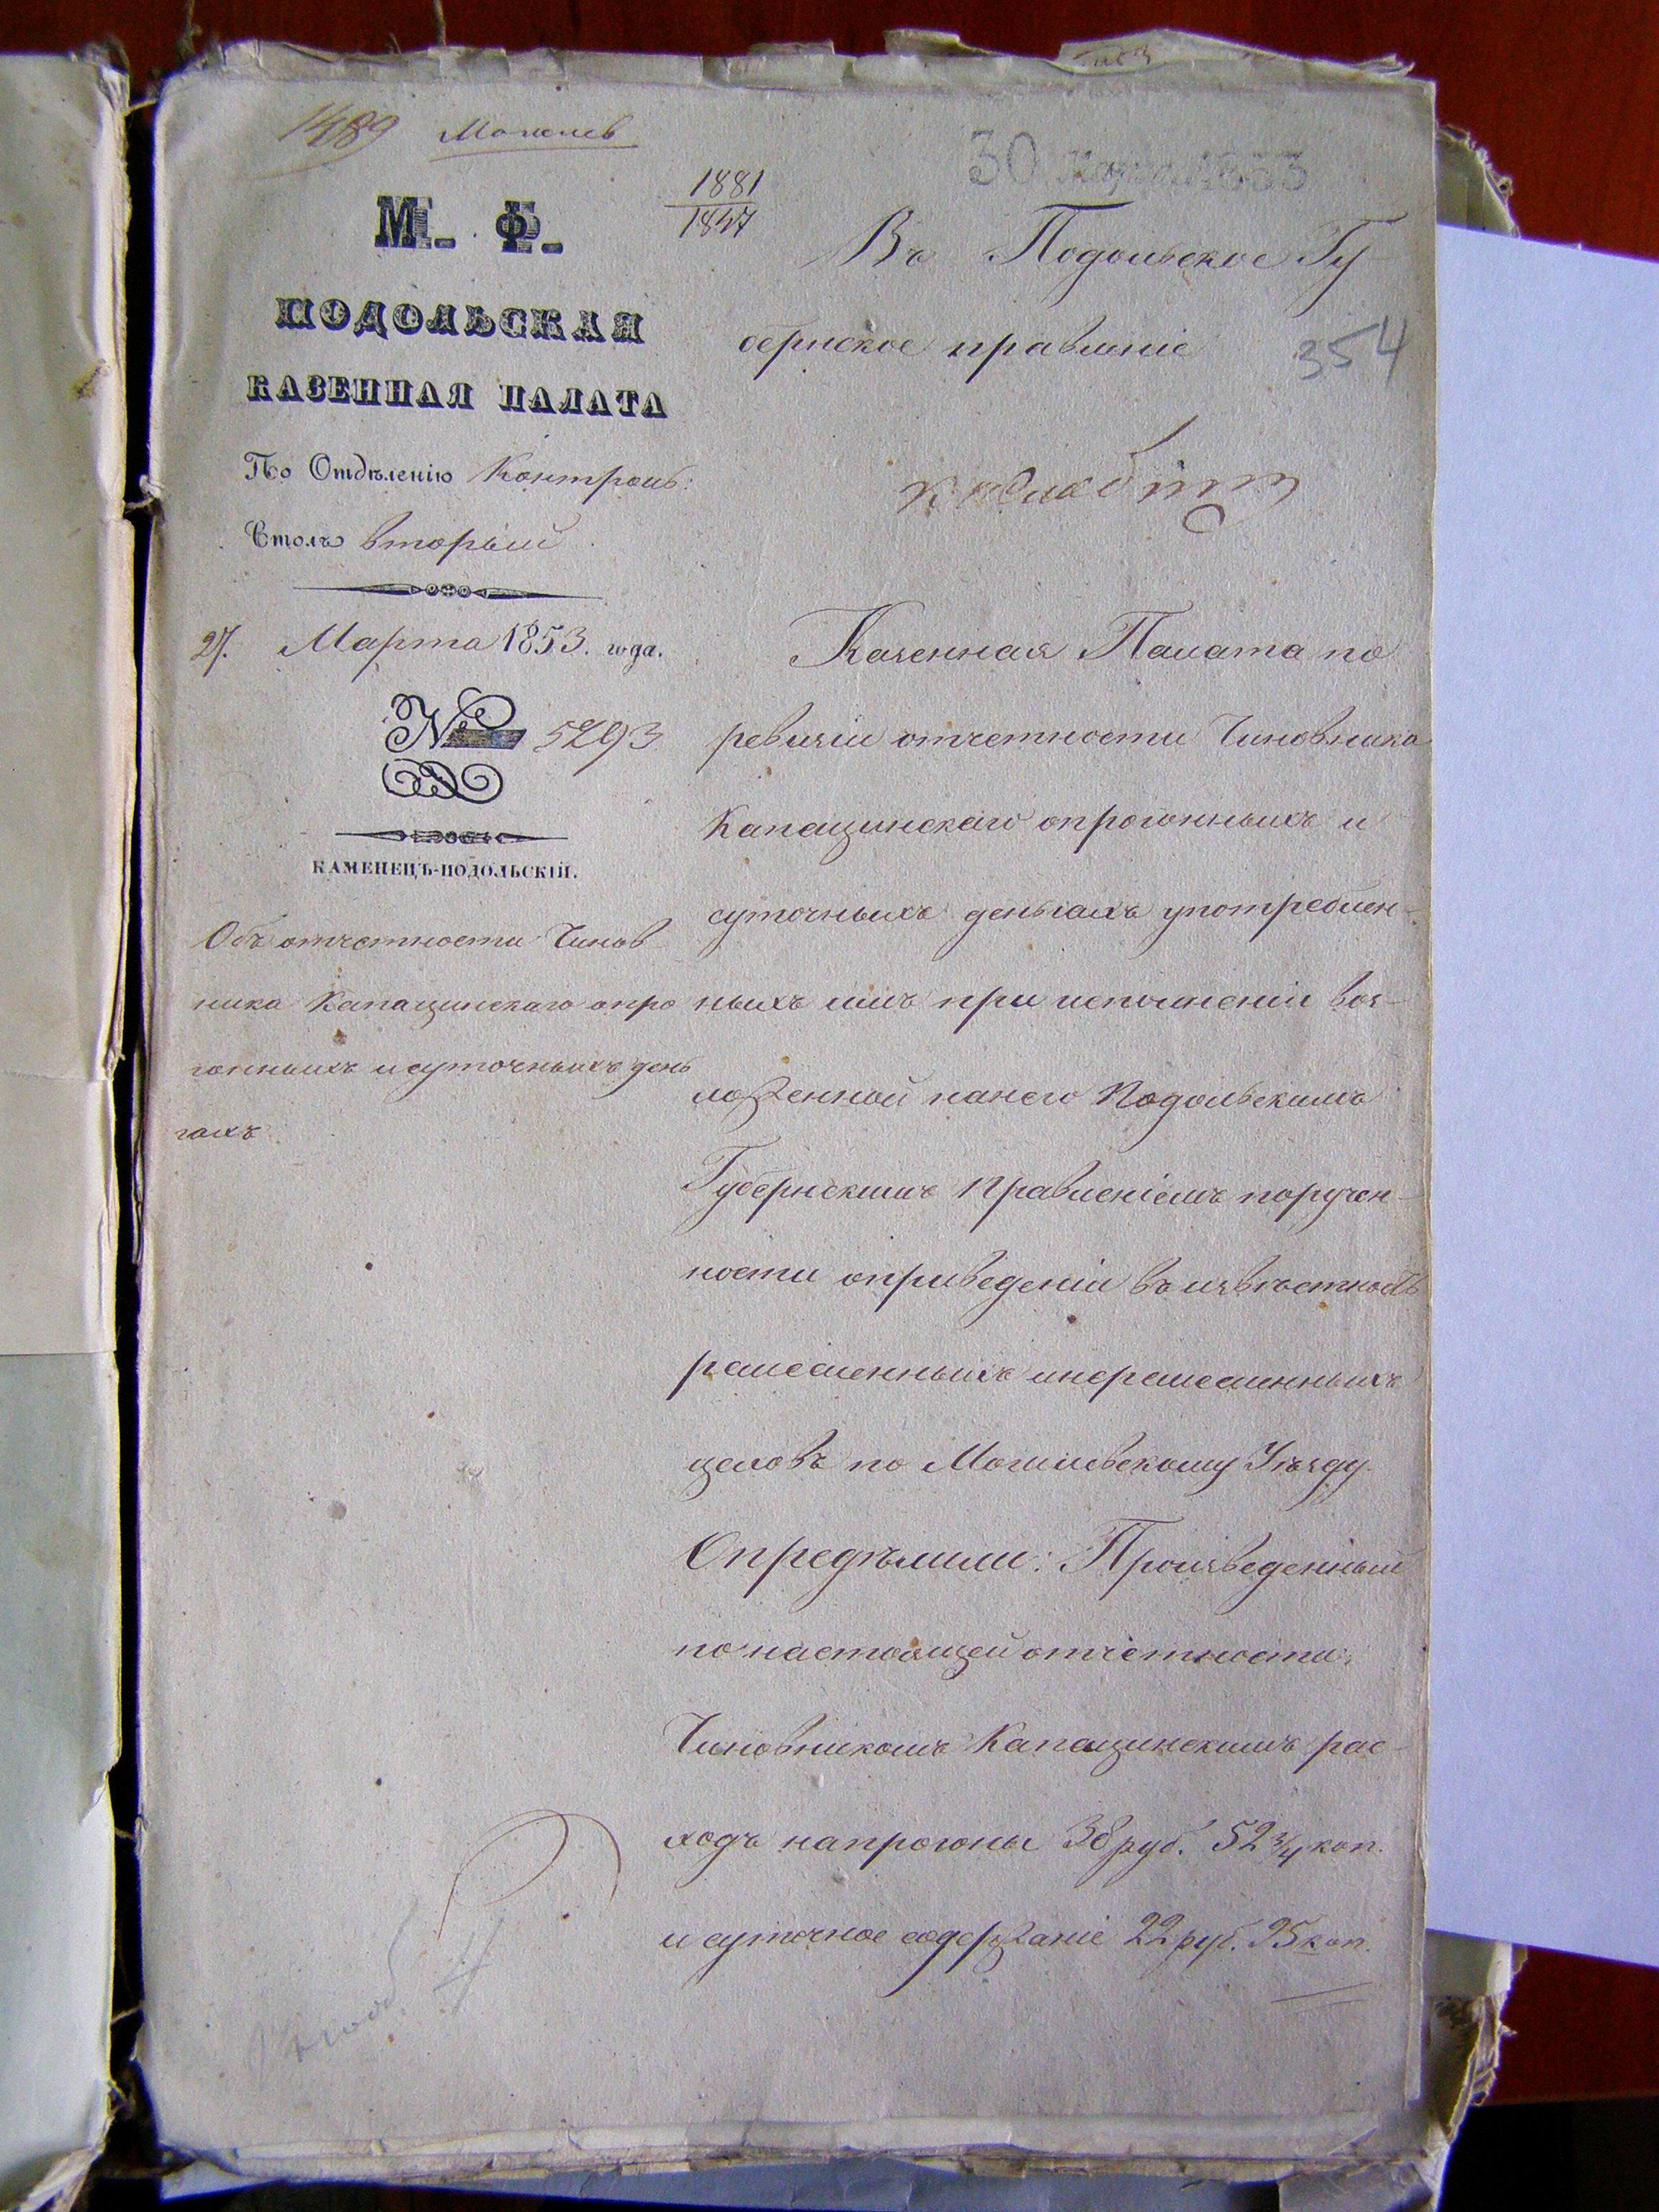 1489 Могилев
30 Марта 1853
1881
1847
М. Ф.
ПОДОЛЬСКАЯ
КАЗЕННАЯ ПАЛАТА
По Отдѣленію Контроль:
Столъ вторый
27. Марта 1853. года.
№ 5293
КАМЕНЕЦЪ-ПОДОЛЬСКІЙ.
Объ отчетности Чинов
ника Капацинскаго о про
гонныхъ и суточныхъ день
гахъ
Въ Подольское Гу-
бернское правленіе
354
Казенная Палата по
ревизіи отчетности Чиновника
Капацинскаго о прогонныхъ и
суточныхъ деньгахъ употреблен-
ныхъ имъ при исполненіи воз-
ложенной на него Подольскимъ
Губернскимъ Правленіемъ поручен-
ности о приведеніи въ извѣстность
ремесленныхъ и неремесленныхъ
цеховъ по Могилевскому Уѣзду
Опредѣлили: Произведенный
по настоящей отчетности
Чиновникомъ Капацинскимъ рас-
ходъ на прогоны 38 руб. 52 3/4 коп.
и суточное содержаніе 22 руб. 95 коп.